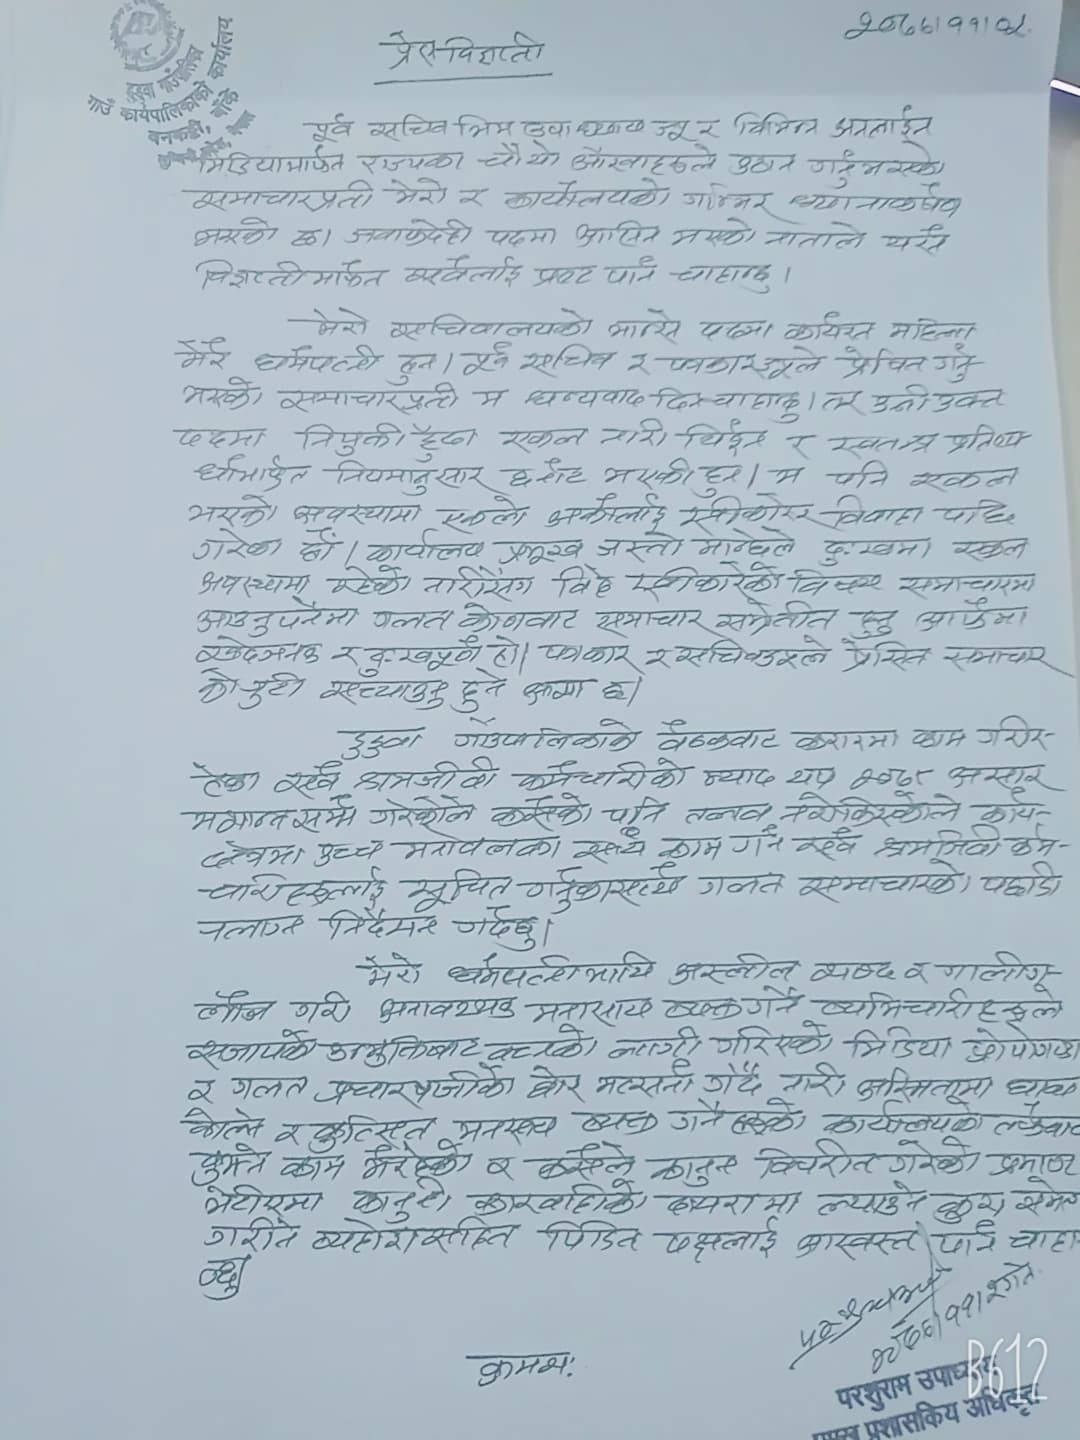 डुडुवा गाउँपालिका
गाउँ कार्यपालिकाको कार्यालय
बनकट्टी, बाँके
२०७६।११।०२
प्रेस विज्ञप्ती
पूर्व सचिव भिम उपाध्याय ज्यू र विभिन्न अनलाईन
मिडियामार्फत राज्यका चौथो आँखाहरुले उठान गर्नुभएको
समाचारप्रती मेरो र कार्यालयको गम्भिर ध्यानाकर्षण
भएको छ। जवाफदेही पदमा आसिन भएको नाताले यसै
विज्ञप्तीमार्फत सबैलाई प्रष्ट पार्न चाहान्छु।
मेरो सचिवालयको भान्से पदमा कार्यरत महिला
मेरै धर्मपत्नी हुन्। पूर्व सचिव र पत्रकारज्यूले प्रेषित गर्नु
भएको समाचारप्रती म धन्यवाद दिन चाहान्छु। तर उनी उक्त
पदमा नियुक्ती हुँदा एकल नारी थिईन र स्वतन्त्र प्रतिष्प
र्धामार्फत नियमानुसार छनौट भएकी हुन्। म पनि एकल
भएको अवस्थामा एकले अर्कोलाई स्वीकारेर विवाह पछि
गरेका हौं। कार्यालय प्रमुख जस्तो मान्छेले दुःखमा एकल
अवस्थामा रहेको नारीसँग विहे स्वीकारेको विषय समाचारमा
आउनुपर्नेमा गलत कोणवाट समाचार सम्प्रेषीत हुनु आफैमा
खेदजनक र दुःखपूर्ण हो। पत्रकार र सचिवज्यूले प्रेसित समाचार
को त्रुटी सच्याउनु हुने आशा छ।
डुडुवा गाँउपालिकाको बैठकबाट करारमा काम गरिर-
हेका सबै श्रमजीवी कर्मचारीको म्याद थप २०७८ असार
मसान्त सम्म गरेकोले कसैको पनि तलब नरोकिएकोले कार्य-
क्षेत्रमा उच्च मनोवलका साथ काम गर्न सबै श्रमजिवी कर्म-
चारीहरुलाई सूचित गर्नुकासाथै गलत समाचारको पछाडी
नलाग्न निर्देशन गर्दछु।
मेरो धर्मपत्नीमाथि अस्लील शब्द र गालीगू-
लौज गरी अनावश्यक मनासाय व्यक्त गर्ने व्यभिचारीहरुले
सजायको उन्मुक्तिबाट बच्नको लागी गरिएको मिडिया प्रोपोगण्डा
र गलत प्रचारबाजीको घोर भत्सर्ना गर्दै नारी अस्मितामा धावा
बोल्ने र कुत्सित मनसाय व्यक्त गर्ने हरुको कार्यालयको तर्फबाट
काम भैरहेको र कसैले कानुन विपरीत गरेको प्रमाण
भेटीएमा कानुनी कारवाहीको दायरामा ल्याउने कुरा समेत
गरीने व्यहोरासहित पिडित पक्षलाई आस्वस्त पार्न चाहा-
न्छु।
२०७६।११।२गते
क्रमशः
परशुराम उपाध्याय
प्रमुख प्रशासकिय अधिकृत
B612